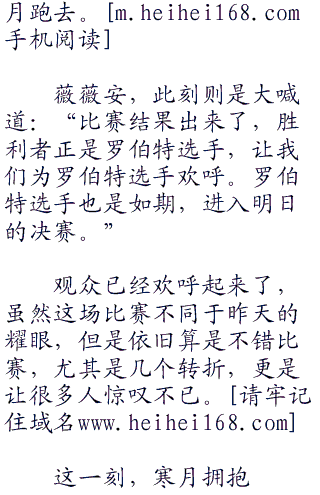 月跑去。[m.heihei168.com
手机阅读]
薇薇安，此刻则是大喊
道：“比赛结果出来了，胜
利者正是罗伯特选手，让我
们为罗伯特选手欢呼。罗伯
特选手也是如期，进入明日
的决赛。”
观众已经欢呼起来了，
虽然这场比赛不同于昨天的
耀眼，但是依旧算是不错比
赛，尤其是几个转折，更是
让很多人惊叹不已。[请牢记
住域名www.heihei168.com]
这一刻，寒月拥抱